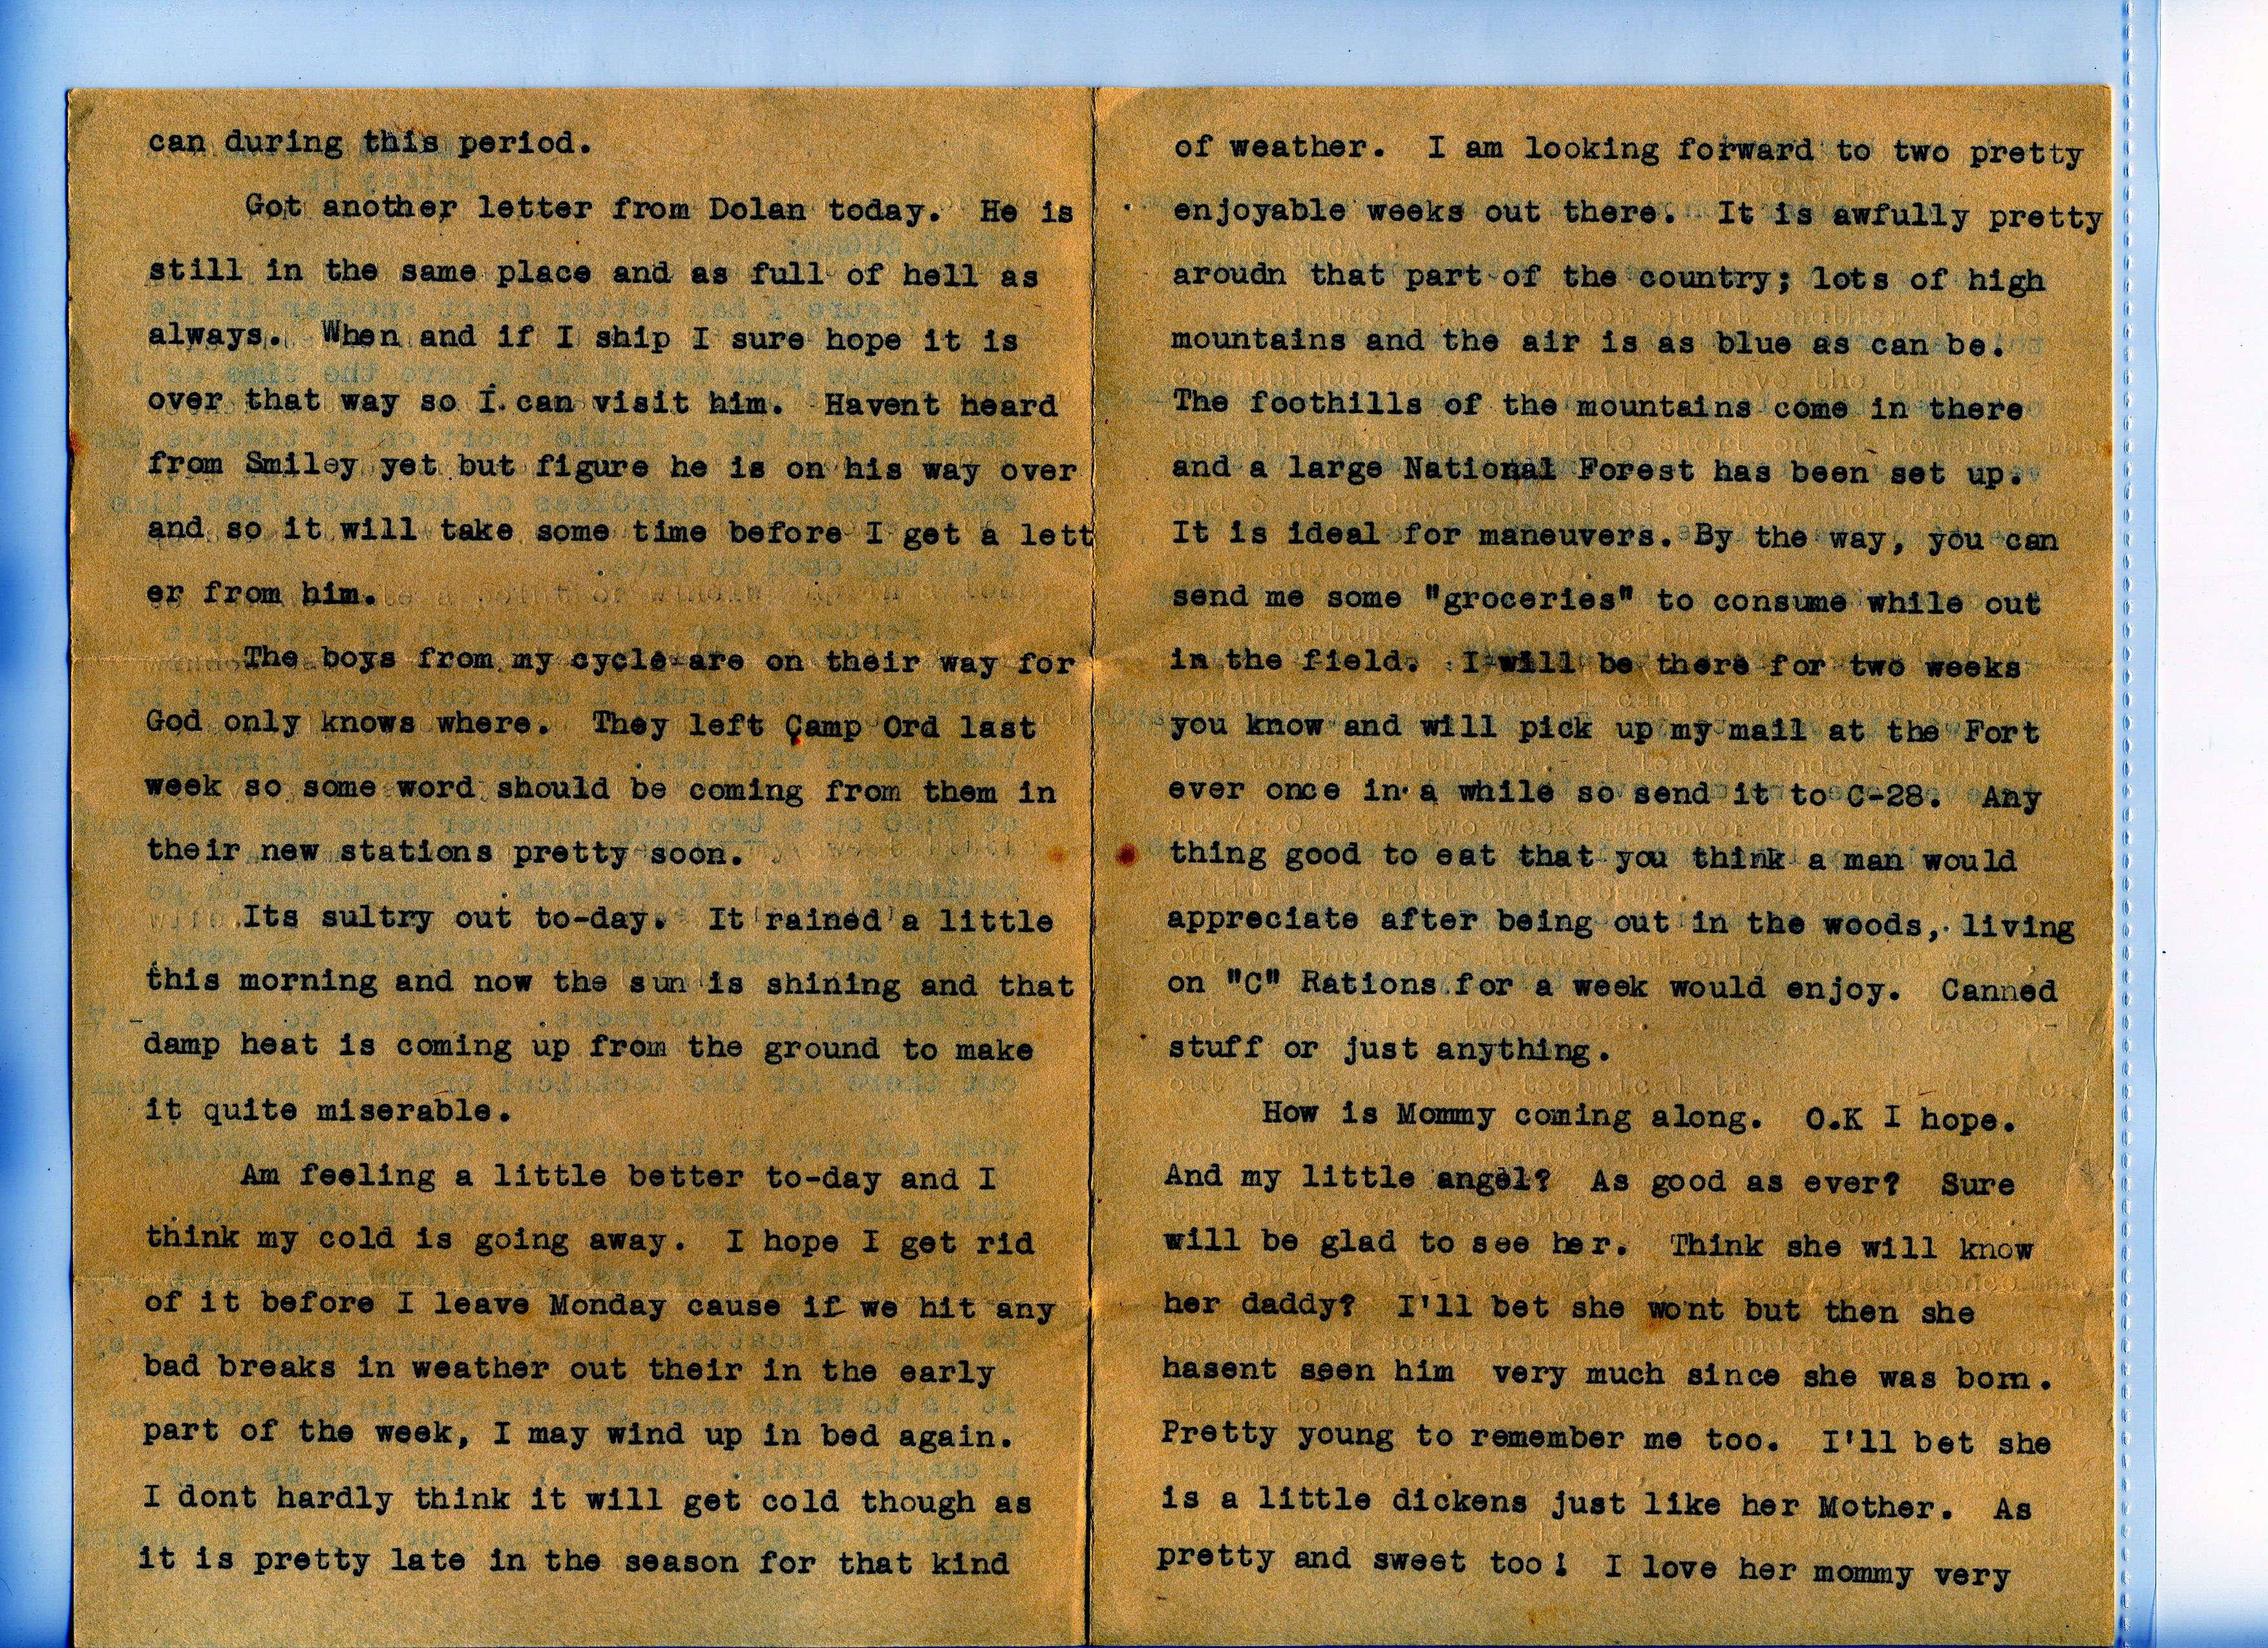 can during this period.
Got another letter from Dolan today. He is
still in the same place and as full of hell as
always. When and if I ship I sure hope it is
over that way so I can visit him. Havent heard
from Smiley yet but figure he is on his way over
and so it will take some time before I get a lett
er from him.
The boys from my cycle are on their way for
God only knows where. They left Camp Ord last
week so some word should be coming from them in
their new stations pretty soon.
Its sultry out to-day. It rained a little
this morning and now the sun is shining and that
damp heat is coming up from the ground to make
it quite miserable.
Am feeling a little better to-day and I
think my cold is going away. I hope I get rid
of it before I leave Monday cause if we hit any
bad breaks in weather out their in the early
part of the week, I may wind up in bed again.
I dont hardly think it will get cold though as
it is pretty late in the season for that kind
of weather. I am looking forward to two pretty
enjoyable weeks out there. It is awfully pretty
aroudn that part of the country; lots of high
mountains and the air is as blue as can be.
The foothills of the mountains come in there
and a large National Forest has been set up.
It is ideal for maneuvers. By the way, you can
send me some "groceries" to consume while out
in the field. I will be there for two weeks
you know and will pick up my mail at the Fort
ever once in a while so send it to C-28. Any
thing good to eat that you think a man would
appreciate after being out in the woods, living
on "C" Rations for a week would enjoy. Canned
stuff or just anything.
How is Mommy coming along. O.K I hope.
And my little angel? As good as ever? Sure
will be glad to see her. Think she will know
her daddy? I'll bet she wont but then she
hasent seen him very much since she was born.
Pretty young to remember me too. I'll bet she
is a little dickens just like her Mother. As
pretty and sweet too! I love her mommy very